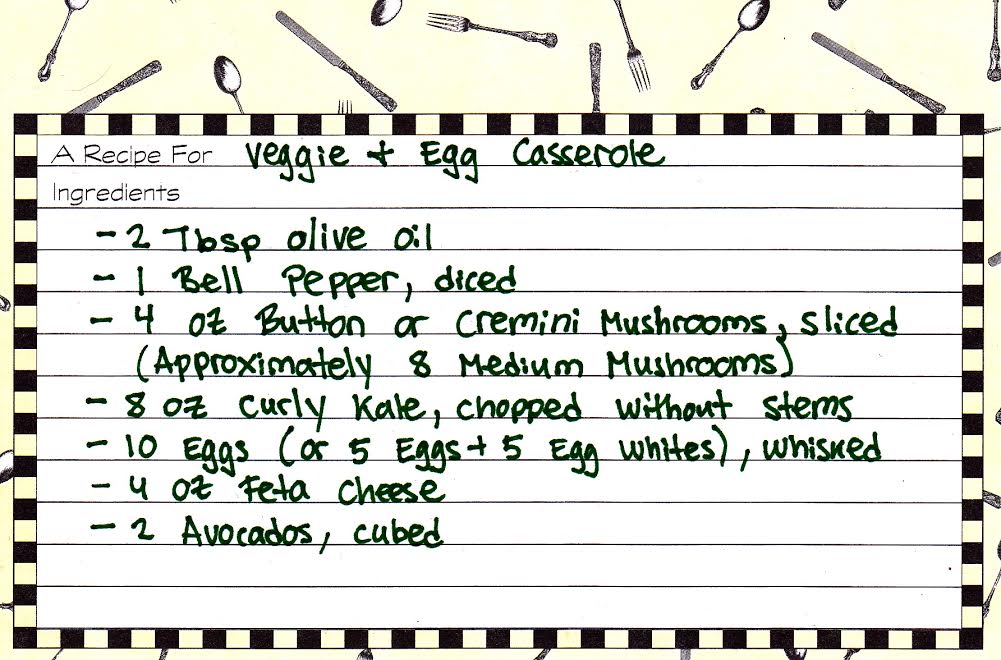 A Recipe For Veggie + Egg Casserole
Ingredients
- 2 Tbsp olive oil
- 1 Bell Pepper, diced
- 4 oz Button or Cremini Mushrooms, sliced
(Approximately 8 Medium Mushrooms)
- 8 oz Curly Kale, chopped without stems
- 10 Eggs (or 5 Eggs + 5 Egg Whites), whisked
- 4 oz Feta Cheese
- 2 Avocados, cubed